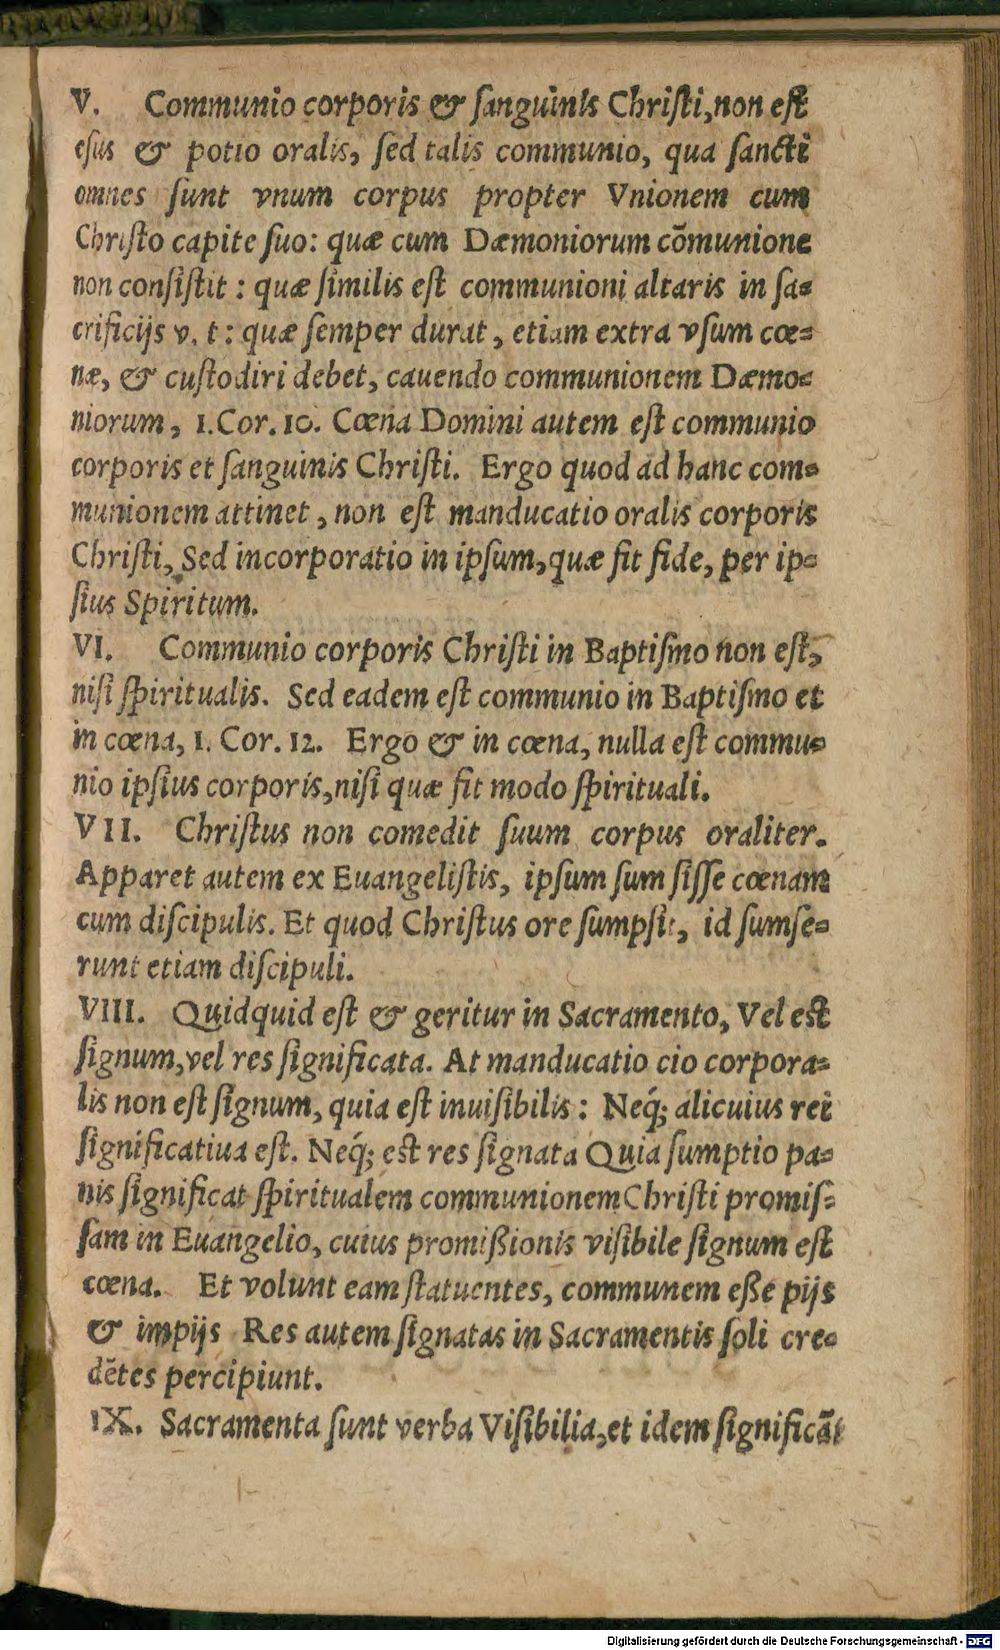 V. Communio corporis & ſanguinis Chriſti, non eſt
eſus & potio oralis, ſed talis communio, qua ſancti
omnes ſunt vnum corpus propter Vnionem cum
Chriſto capite ſuo: quæ cum Dæmoniorum cōmunione
non conſiſtit : quæ ſimilis eſt communioni altaris in ſa-
crificijs v. t : quæ ſemper durat, etiam extra vſum cœ-
næ, & cuſtodiri debet, cauendo communionem Dæmo-
niorum, 1. Cor. 10. Cœna Domini autem eſt communio
corporis et ſanguinis Chriſti. Ergo quod ad hanc com-
munionem attinet, non eſt manducatio oralis corporis
Chriſti, Sed incorporatio in ipſum, quæ fit fide, per ip-
ſius Spiritum.
VI. Communio corporis Chriſti in Baptiſmo non eſt,
niſi ſpiritualis. Sed eadem eſt communio in Baptiſmo et
in cœna, 1. Cor. 12. Ergo & in cœna, nulla eſt commu-
nio ipſius corporis, niſi quæ fit modo ſpirituali.
VII. Chriſtus non comedit ſuum corpus oraliter.
Apparet autem ex Euangeliſtis, ipſum ſumſiſſe cœnam
cum diſcipulis. Et quod Chriſtus ore ſumpſit, id ſumſe-
runt etiam diſcipuli.
VIII. Quidquid eſt & geritur in Sacramento, Vel eſt
ſignum, vel res ſignificata. At manducatio cio corpora-
lis non eſt ſignum, quia eſt inuiſibilis : Neq́; alicuius rei
ſignificatiua eſt. Neq́; eſt res ſignata Quia ſumptio pa-
nis ſignificat ſpiritualem communionem Chriſti promiſ-
ſam in Euangelio, cuius promißionis viſibile ſignum eſt
cœna. Et volunt eam ſtatuentes, communem eße pijs
& impijs Res autem ſignatas in Sacramentis ſoli cre-
dẽtes percipiunt.
IX. Sacramenta ſunt verba Viſibilia, et idem ſignificāt
Digitalisierung gefördert durch die Deutsche Forschungsgemeinschaft - DFG